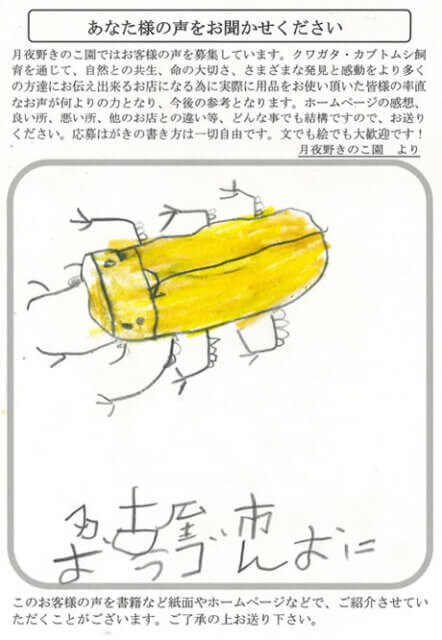 あなた様の声をお聞かせください
月夜野きのこ園ではお客様の声を募集しています。クワガタ・カブトムシ飼
育を通じて、自然との共生、命の大切さ、さまざまな発見と感動をより多く
の方達にお伝え出来るお店になる為に実際に用品をお使い頂いた皆様の率直
なお声が何よりの力となり、今後の参考となります。ホームページの感想、
良い所、悪い所、他のお店との違い等、どんな事でも結構ですので、お送り
ください。応募はがきの書き方は一切自由です。文でも絵でも大歓迎です！
月夜野きのこ園　より
名古屋市
おうゴんおに
このお客様の声を書籍など紙面やホームページなどで、ご紹介させてい
ただくことがございます。ご了承の上お送り下さい。